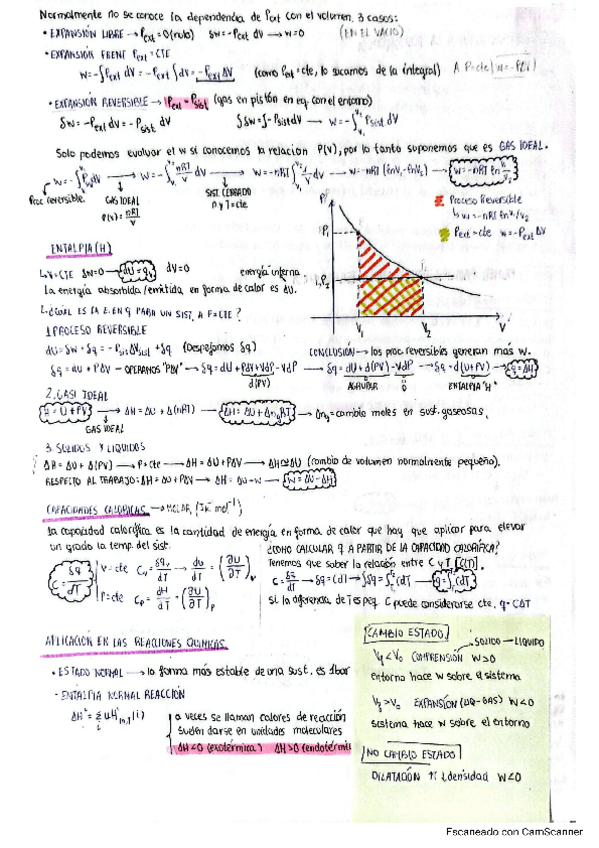 Normalmente no se conoce la dependencia de Pext con el volumen. 3 casos:
• EXPANSIÓN LIBRE → Pext = 0 (nulo) δw = -Pext dV → w = 0 (EN EL VACÍO)
• EXPANSIÓN FRENT Pext = CTE
w = -∫Pext dV = -Pext ∫dV = -Pext ΔV (como Pext = cte, lo sacamos de la integral) A P=cte | w = -PΔV
• EXPANSIÓN REVERSIBLE → Pext = Psist (gas en pistón en eq. con el entorno)
δw = -Pext dV = -Psist dV ∫δw = ∫-Psist dV → w = -∫ Psist dV
Solo podemos evaluar el w si conocemos la relación P(V), por lo tanto suponemos que es GAS IDEAL.
w = -∫ dV → w = -∫ nRT/V dV → w = -nRT ∫ dV/V → w = -nRT (lnV₂ - lnV₁) → w = -nRT ln V₂/V₁
Proc. reversible. GAS IDEAL P(V) = nRT/V SIST. CERRADO n y T = cte
Proceso Reversible
w = -nRT ln V₁/V₂
Pext = cte w = -Pext ΔV
P
P₁
P₂
V₁ V₂ V
ENTALPIA (H)
1. V = CTE δw = 0 → dU = qv dV = 0 energía interna
La energía absorbida/emitida en forma de calor es ΔU.
2. ¿CUÁL ES LA E. EN Q PARA UN SIST. A P = CTE?
1. PROCESO REVERSIBLE
dU = δw + δq = -Psist ΔVsist + δq (Despejamos δq) CONCLUSIÓN → los proc. reversibles generan más w.
δq = dU + PdV → OPERAMOS "PDV" → δq = dU + PdV + VdP - VdP → δq = dU + d(PV) - VdP → δq = d(U + PV) → δq = dH
d(PV) AGRUPAR 0 ENTALPIA "H"
2. GAS IDEAL
H = U + PV → ΔH = ΔU + Δ(nRT) → ΔH = ΔU + ΔngRT → Δng = cambio moles en sust. gaseosas.
GAS IDEAL
3. SOLIDOS Y LIQUIDOS
ΔH = ΔU + Δ(PV) → P = cte → ΔH = ΔU + PΔV → ΔH ≅ ΔU (cambio de volumen normalmente pequeño).
RESPECTO AL TRABAJO: ΔH = ΔU + PΔV → ΔH = ΔU - w → w = ΔU - ΔH
CAPACIDADES CALORÍFICAS → MOLAR, [JK⁻¹mol⁻¹]
La capacidad calorífica es la cantidad de energía en forma de calor que hay que aplicar para elevar
un grado la temp. del sist.
C = δq/dT
V = cte Cv = δq/dT → dU/dT = (∂U/∂T)V
P = cte Cp = dH/dT = (∂U/∂T)P
¿COMO CALCULAR q A PARTIR DE LA CAPACIDAD CALORÍFICA?
Tenemos que saber la relación entre C y T [C(T)].
C = δq/dT → δq = CdT → ∫δq = ∫CdT → q = ∫CdT
si la diferencia de T es peq. C puede considerarse cte. q = CΔT
APLICACIÓN EN LAS REACCIONES QUIMICAS.
• ESTADO NORMAL → la forma más estable de una sust. es 1bar
- ENTALPIA NORMAL REACCIÓN
a veces se llaman calores de reacción
suelen darse en unidades moleculares
ΔH<0 (exotérmica) ΔH>0 (endotérmi
CAMBIO ESTADO
SOLIDO — LIQUIDO
Vf < V₀ COMPRENSIÓN W>0
entorno hace w sobre el sistema
Vf > V₀ EXPANSIÓN (LIQ-GAS) W<0
sistema hace w sobre el entorno
NO CAMBIO ESTADO
DILATACIÓN ↑T ↓densidad W<0
Escaneado con CamScanner